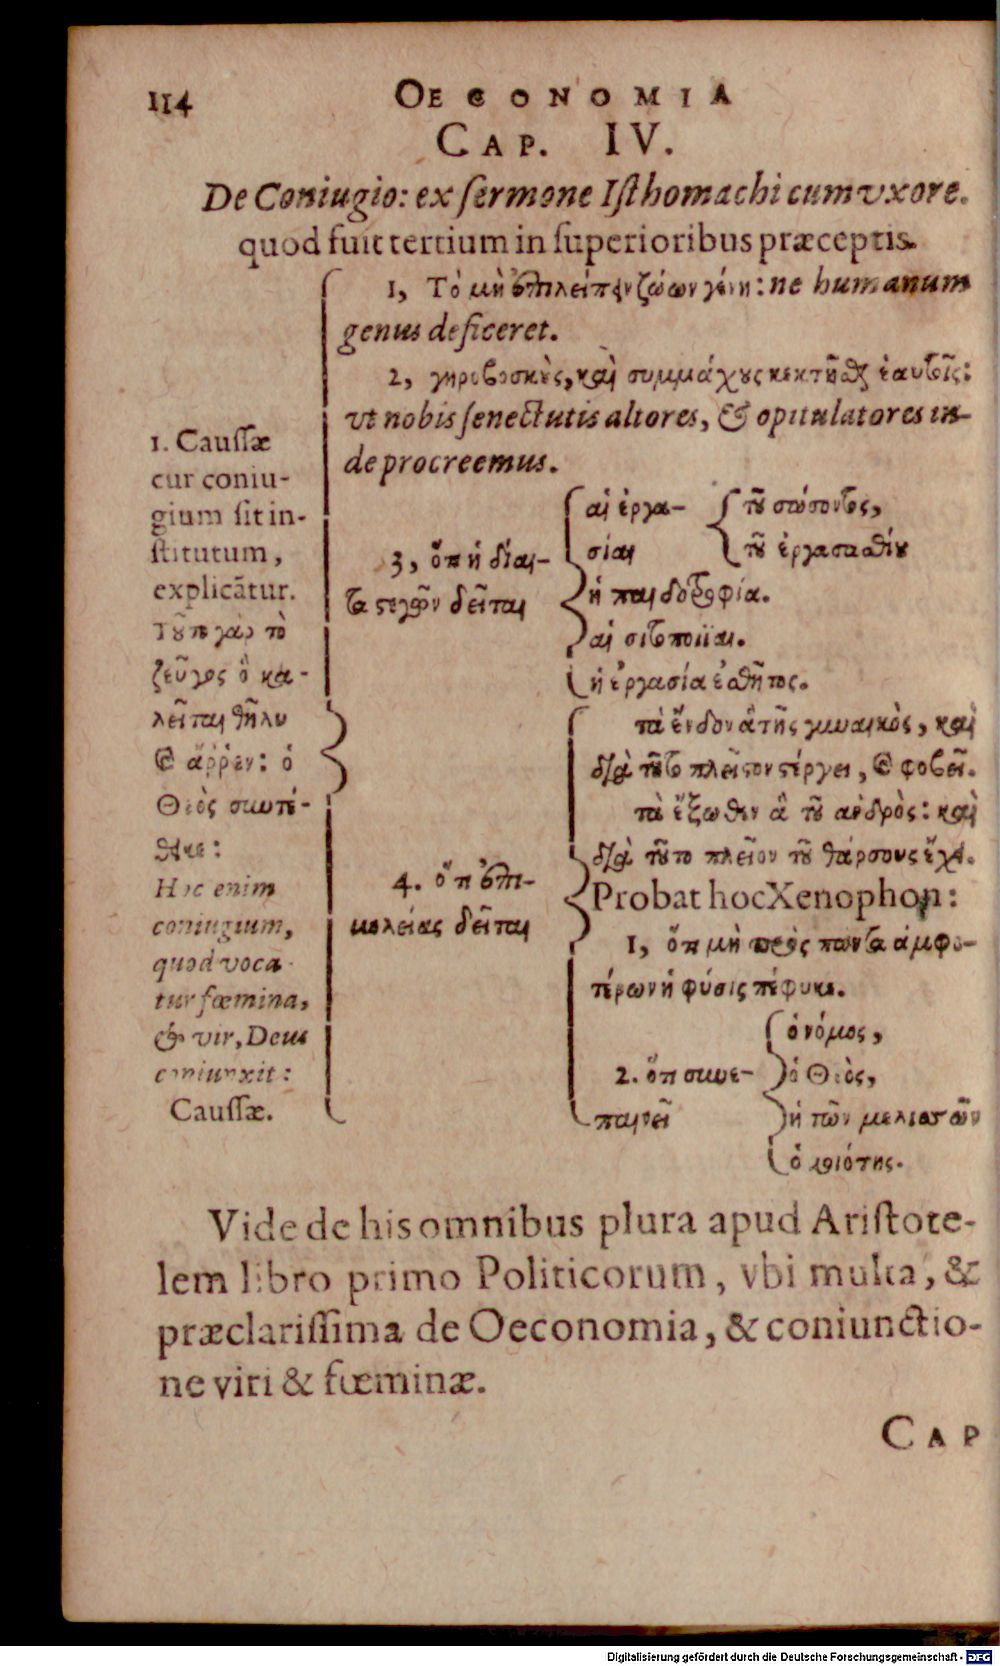 114 OECONOMIA
CAP. IV.
De Coniugio: ex sermone Isthomachi cum vxore.
quod fuit tertium in superioribus præceptis.
1. Caussæ
cur coniu-
gium sit in-
stitutum,
explicãtur.
Τοῦτο γὰρ τὸ
ζεῦγος ὃ κα-
λεῖται θῆλυ
καὶ ἄρρεν: ὁ
Θεὸς συντέ-
θεικε:
Hoc enim
coniugium,
quod voca-
tur fœmina,
& vir, Deus
coniunxit:
Caussæ.
1, Τὸ μὴ ἐπιλείπειν ζώων γένη: ne humanum
genus deficeret.
2, γηροβοσκοὺς, καὶ συμμάχους κεκτῆσθαι ἑαυτοῖς:
vt nobis senectutis altores, & opitulatores in-
de procreemus.
3, ὅτι ἡ δίαι-
τα στεγῶν δεῖται
αἱ ἐργα-
σίαι
τοῦ σώσοντος,
τοῦ ἐργασαμένου
ἡ παιδοτροφία.
αἱ σιτοποιΐαι.
ἡ ἐργασία ἐσθῆτος.
4. ὅτι ἐπι-
μελείας δεῖται
τὰ ἔνδον ἃ τῆς γυναικὸς, καὶ
διὰ τοῦτο πλεῖστον στέργει, καὶ φοβεῖ.
τὰ ἔξωθεν ἃ τοῦ ανδρὸς: καὶ
διὰ τοῦτο πλεῖον τοῦ θάρσους ἔχει.
Probat hoc Xenophon:
1, ὅτι μὴ πρὸς παντα ἀμφο-
τέρων ἡ φύσις πέφυκε.
2. ὅτι συνε-
παινεῖ
ὁ νόμος,
ὁ Θεὸς,
ἡ τῶν μελισσῶν
ὁμοιότης.
Vide de his omnibus plura apud Aristote-
lem libro primo Politicorum, vbi multa, &
præclarissima de Oeconomia, & coniunctio-
ne viri & fœminæ.
CAP
Digitalisierung gefördert durch die Deutsche Forschungsgemeinschaft - DFG